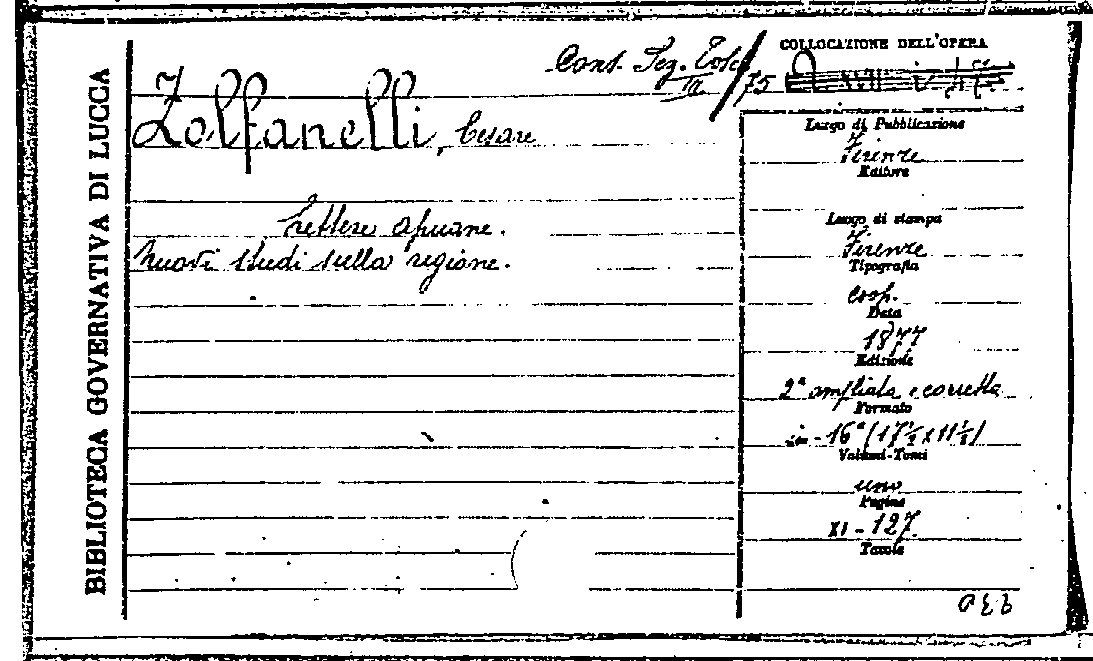 BIBLIOTECA GOVERNATIVA DI LUCCA
Cons. Leg. Tosc.
III / 75
COLLOCAZIONE DELL'OPERA
Zolfanelli, Cesare
Lettere apuane.
Nuovi studi sulla regione.
Luogo di Pubblicazione
Firenze
Editore
Luogo di stampa
Firenze
Tipografia
coop.
Data
1877
Edizione
2ª ampliata e corretta
Formato
in - 16° (17½ x 11½)
Volumi-Tomi
uno
Pagine
XI - 127.
Tavole